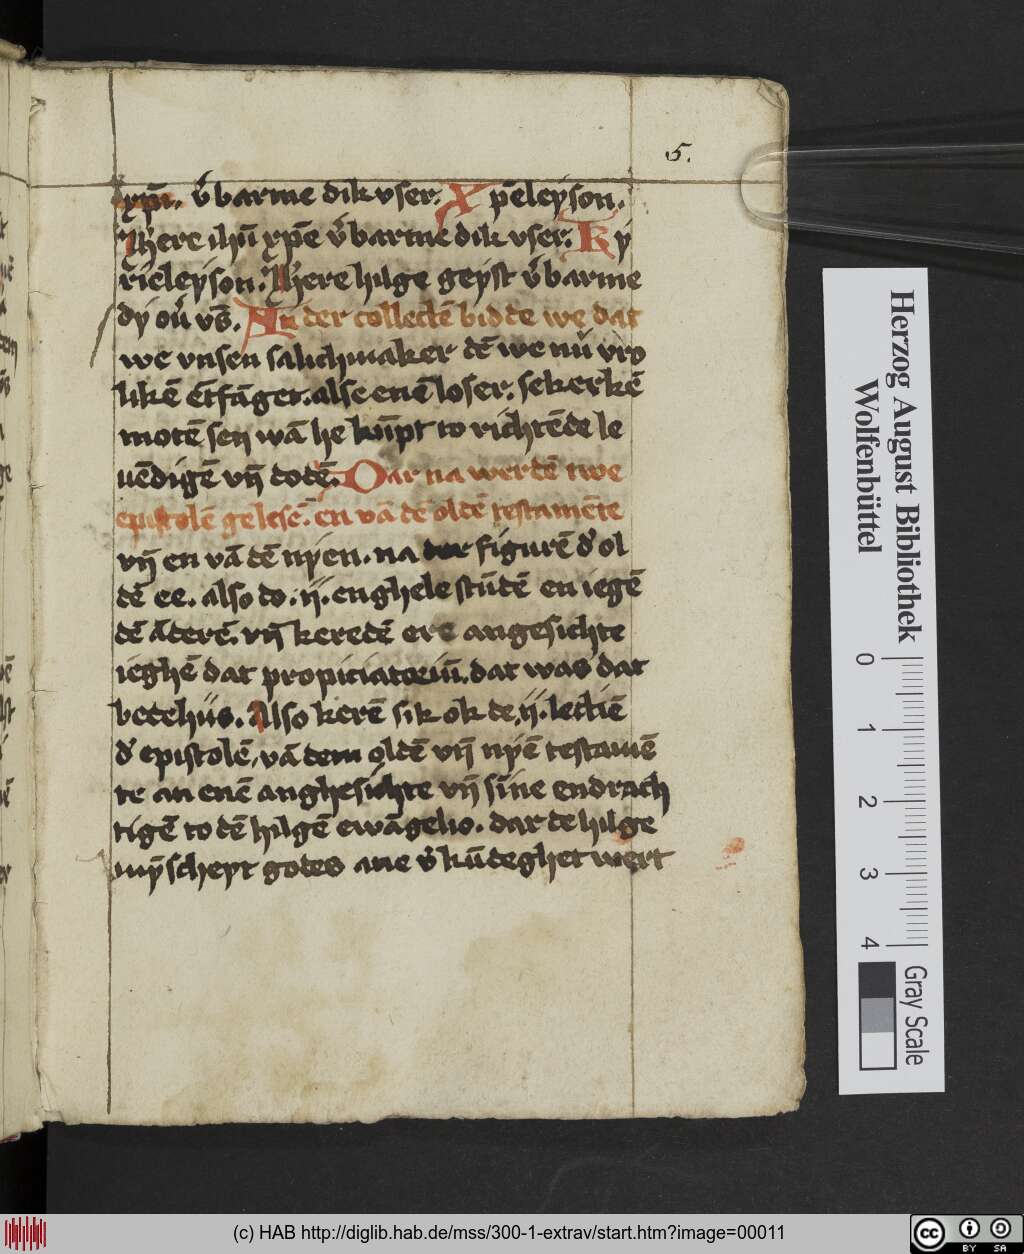 5.
xpi. v̄barme dik vser. Xpēleyson.
Here ihū xpē v̄barme dik vser. Ky
rieleyson. Here hilge geyst v̄barme
dy ou̓ vs̄. In der collectē bidde we dat
we vnsen salichmaker dē we nū vro
likē ētfāget. alse enē loser. sekerkē
motē sen wā he kūpt to richtēde le
uēdigē vn̄ dodē. Dar na werdē twe
epistolē gelesē. en vā dē oldē testamēte
vn̄ en vā dē nyen. na der figurē d' ol
dē ee. also do .ij. enghele stūdē en iegē
dē āderē. vn̄ keredē ere angesichte
ieghē dat propiciatoriū. dat was dat
bedehūs. Also kerē sik ok de .ij. lectiē
d' epistolē, vā dem oldē vn̄ nyē testamē
te an enē anghesichte vn̄ sīne endrach
tigē to dē hilgē ewāgelio. dar de hilge
mȳscheyt godes ane v̓kūdeghet wert
Herzog August Bibliothek
Wolfenbüttel
0 1 2 3 4
Gray Scale
(c) HAB http://diglib.hab.de/mss/300-1-extrav/start.htm?image=00011
cc BY SA